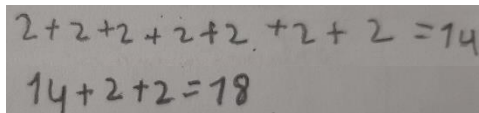 2+2+2+2+2+2+2=14
14+2+2=18